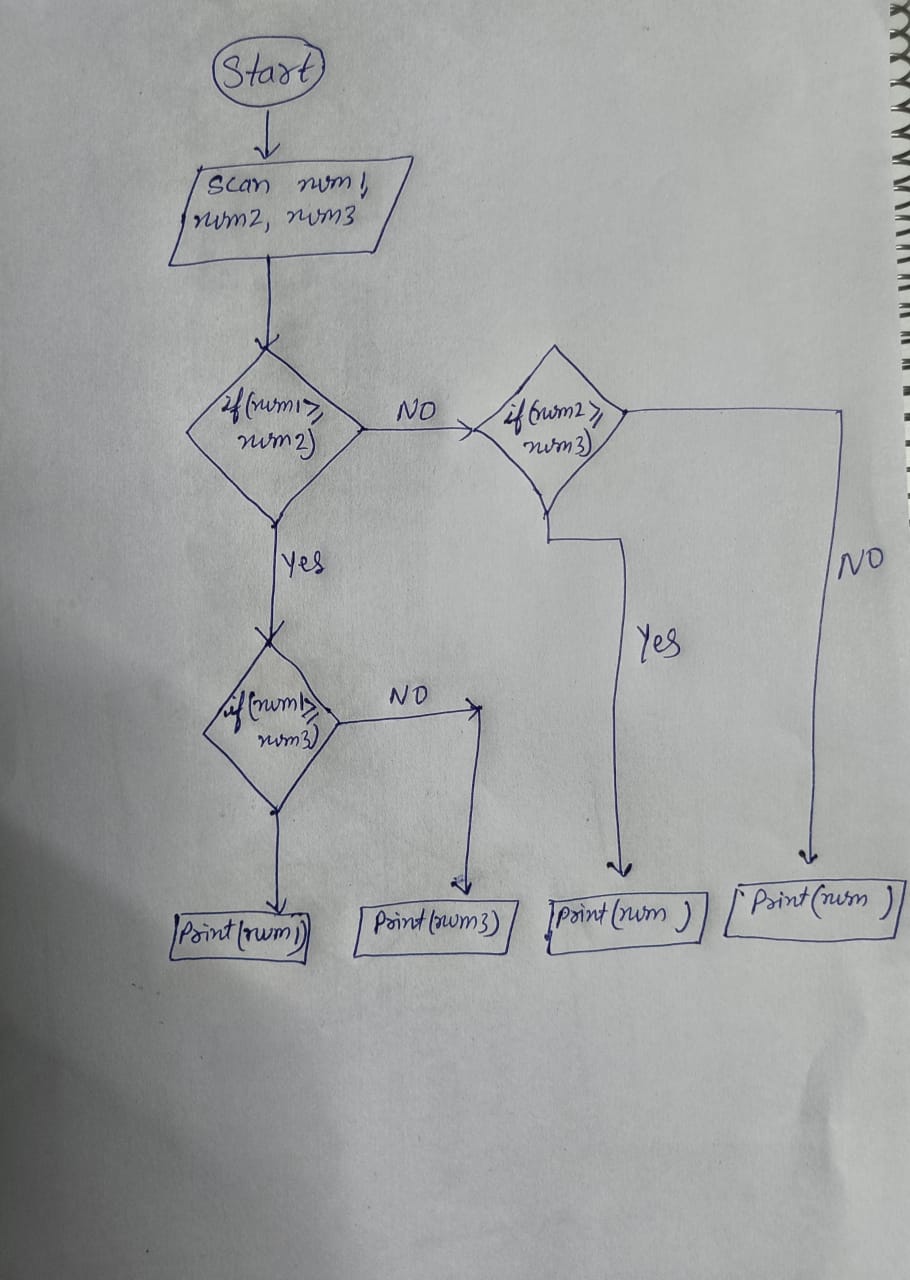 Start
Scan num1,
num2, num3
if(num1>,
num2)
NO
if(num2>,
num3)
NO
Yes
Yes
if(num1>,
num3)
NO
Print(num1)
Print(num3)
Print(num )
Print(num )